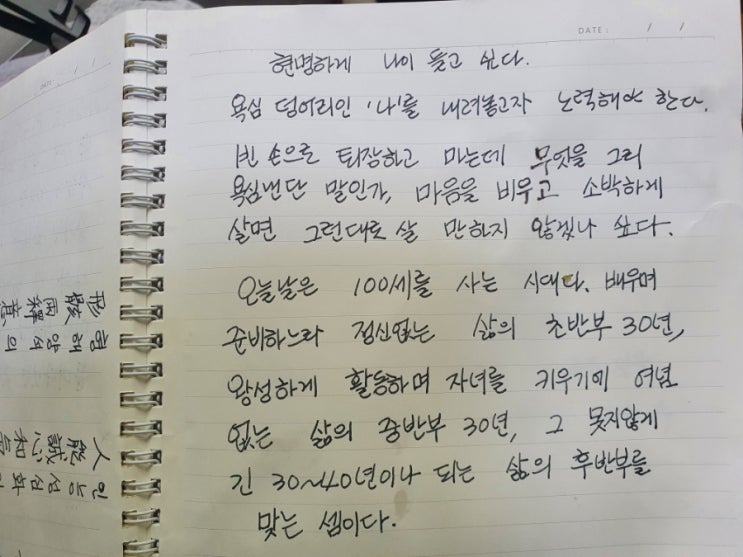 DATE : / /
현명하게 나이 들고 싶다.
욕심 덩어리인 '나'를 내려놓고자 노력해야 한다.
빈 손으로 퇴장하고 마는데 무엇을 그리
욕심낸단 말인가, 마음을 비우고 소박하게
살면 그런대로 살 만하지 않겠나 싶다.
오늘날은 100세를 사는 시대다. 배우며
준비하느라 정신없는 삶의 초반부 30년,
왕성하게 활동하며 자녀를 키우기에 여념
없는 삶의 중반부 30년, 그 못지않게
긴 30~40년이나 되는 삶의 후반부를
맞는 셈이다.
形骸兩釋意
형해양석의
人能誠心和
인능성심화